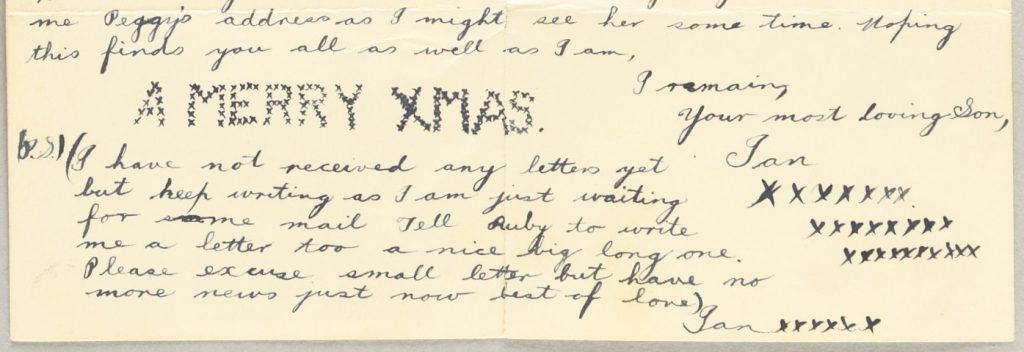 me Peggy's address as I might see her some time. Hoping
this finds you all as well as I am,
I remain,
A MERRY XMAS.
Your most loving Son,
Ian
P.S.) (I have not received any letters yet
but keep writing as I am just waiting
for some mail Tell Ruby to write
me a letter too a nice big long one.
Please excuse small letter but have no
more news just now best of love)
Ian xxxxxx
X X X X X X X
X X X X X X X X
X X X X X X X X X